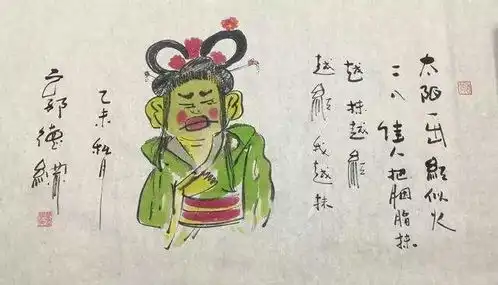 太阳一出红似火
二八佳人把胭脂抹。
越抹越红
越红我越抹
乙未秋月
郭德纲